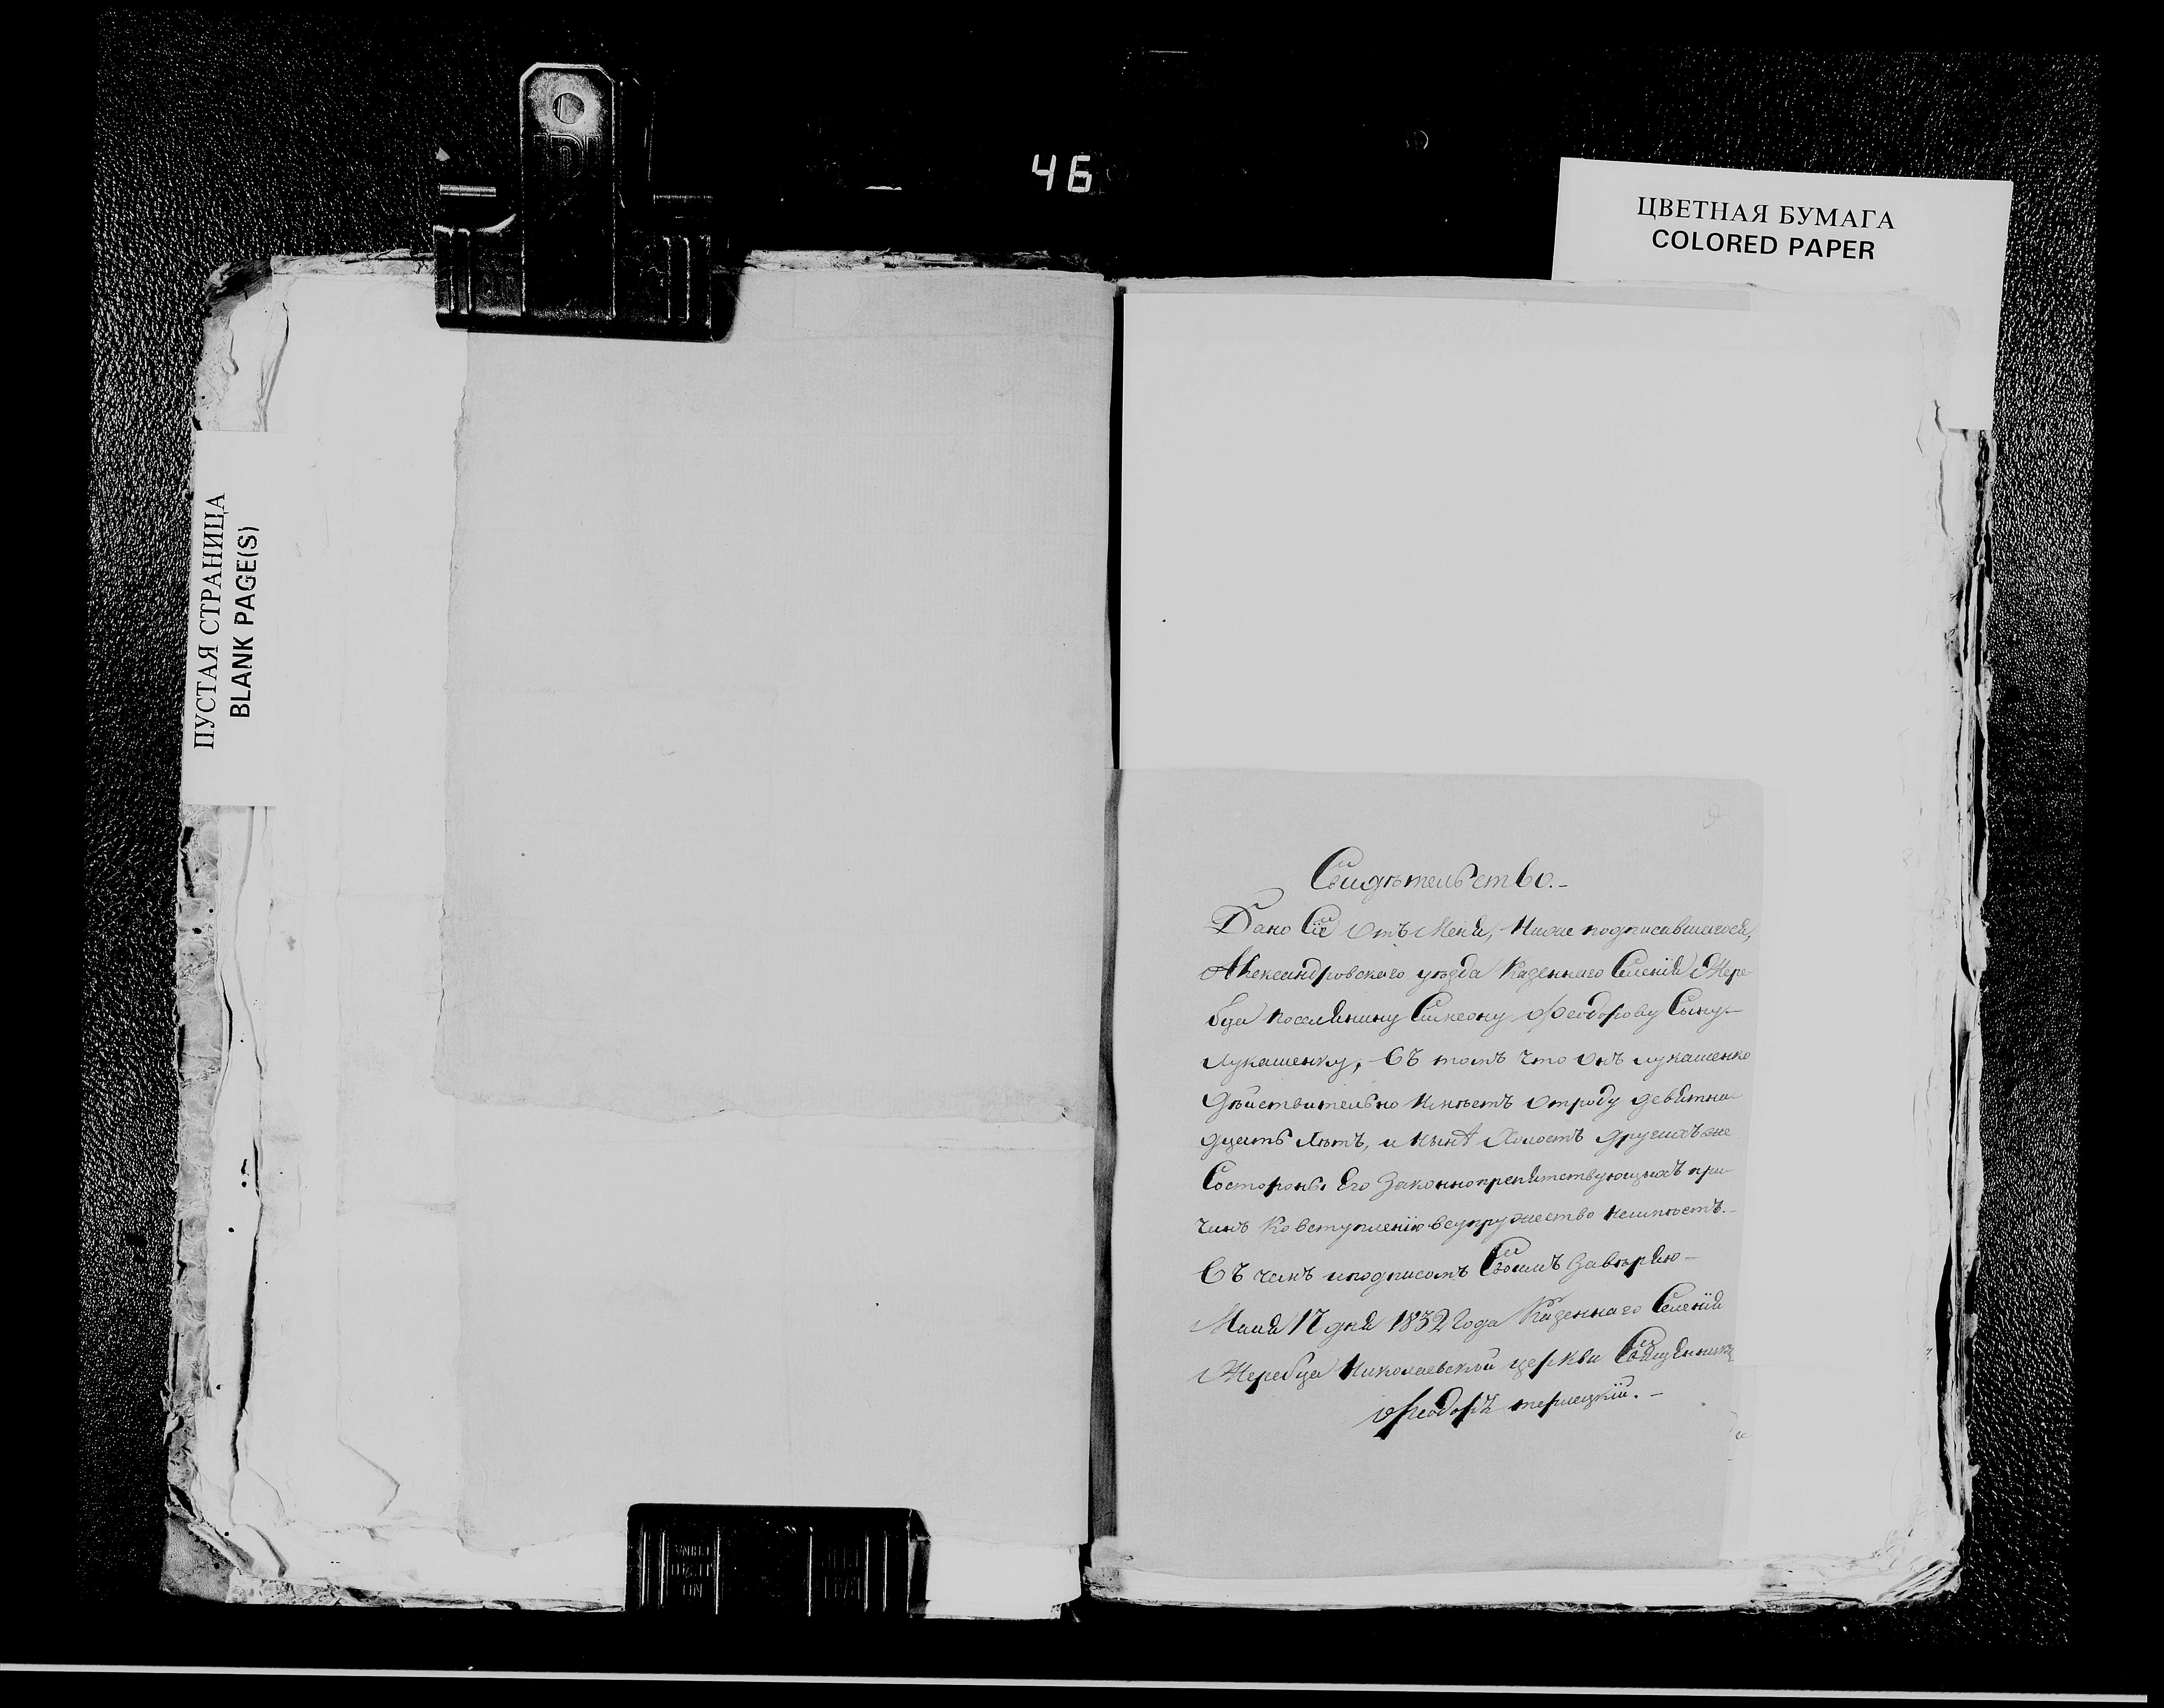 46
ЦВЕТНАЯ БУМАГА
COLORED PAPER
ПУСТАЯ СТРАНИЦА
BLANK PAGE(S)
Свидѣтельство.-
Дано Сіе отъ меня, Ниже подписавшагося,
Александровскаго уѣзда Казеннаго Селенія Жере-
бца поселянину Симеону Феодорову Сыну-
Лукашенку, Въ томъ что онъ лукашенко
дѣйствительно имѣетъ отроду девятна-
дцать лѣтъ, и нынѣ холостъ другихъ же
Состороны Его Законнопрепятствующихъ при-
чинъ Ковступленію всупружество неимѣетъ.-
Въ чемъ иподписомъ Своимъ Завѣряю-
Маія 17 дня 1832 Года Казеннаго Селенія
Жеребца Николаевской церкви Священникъ
Феодоръ терлецкій.-